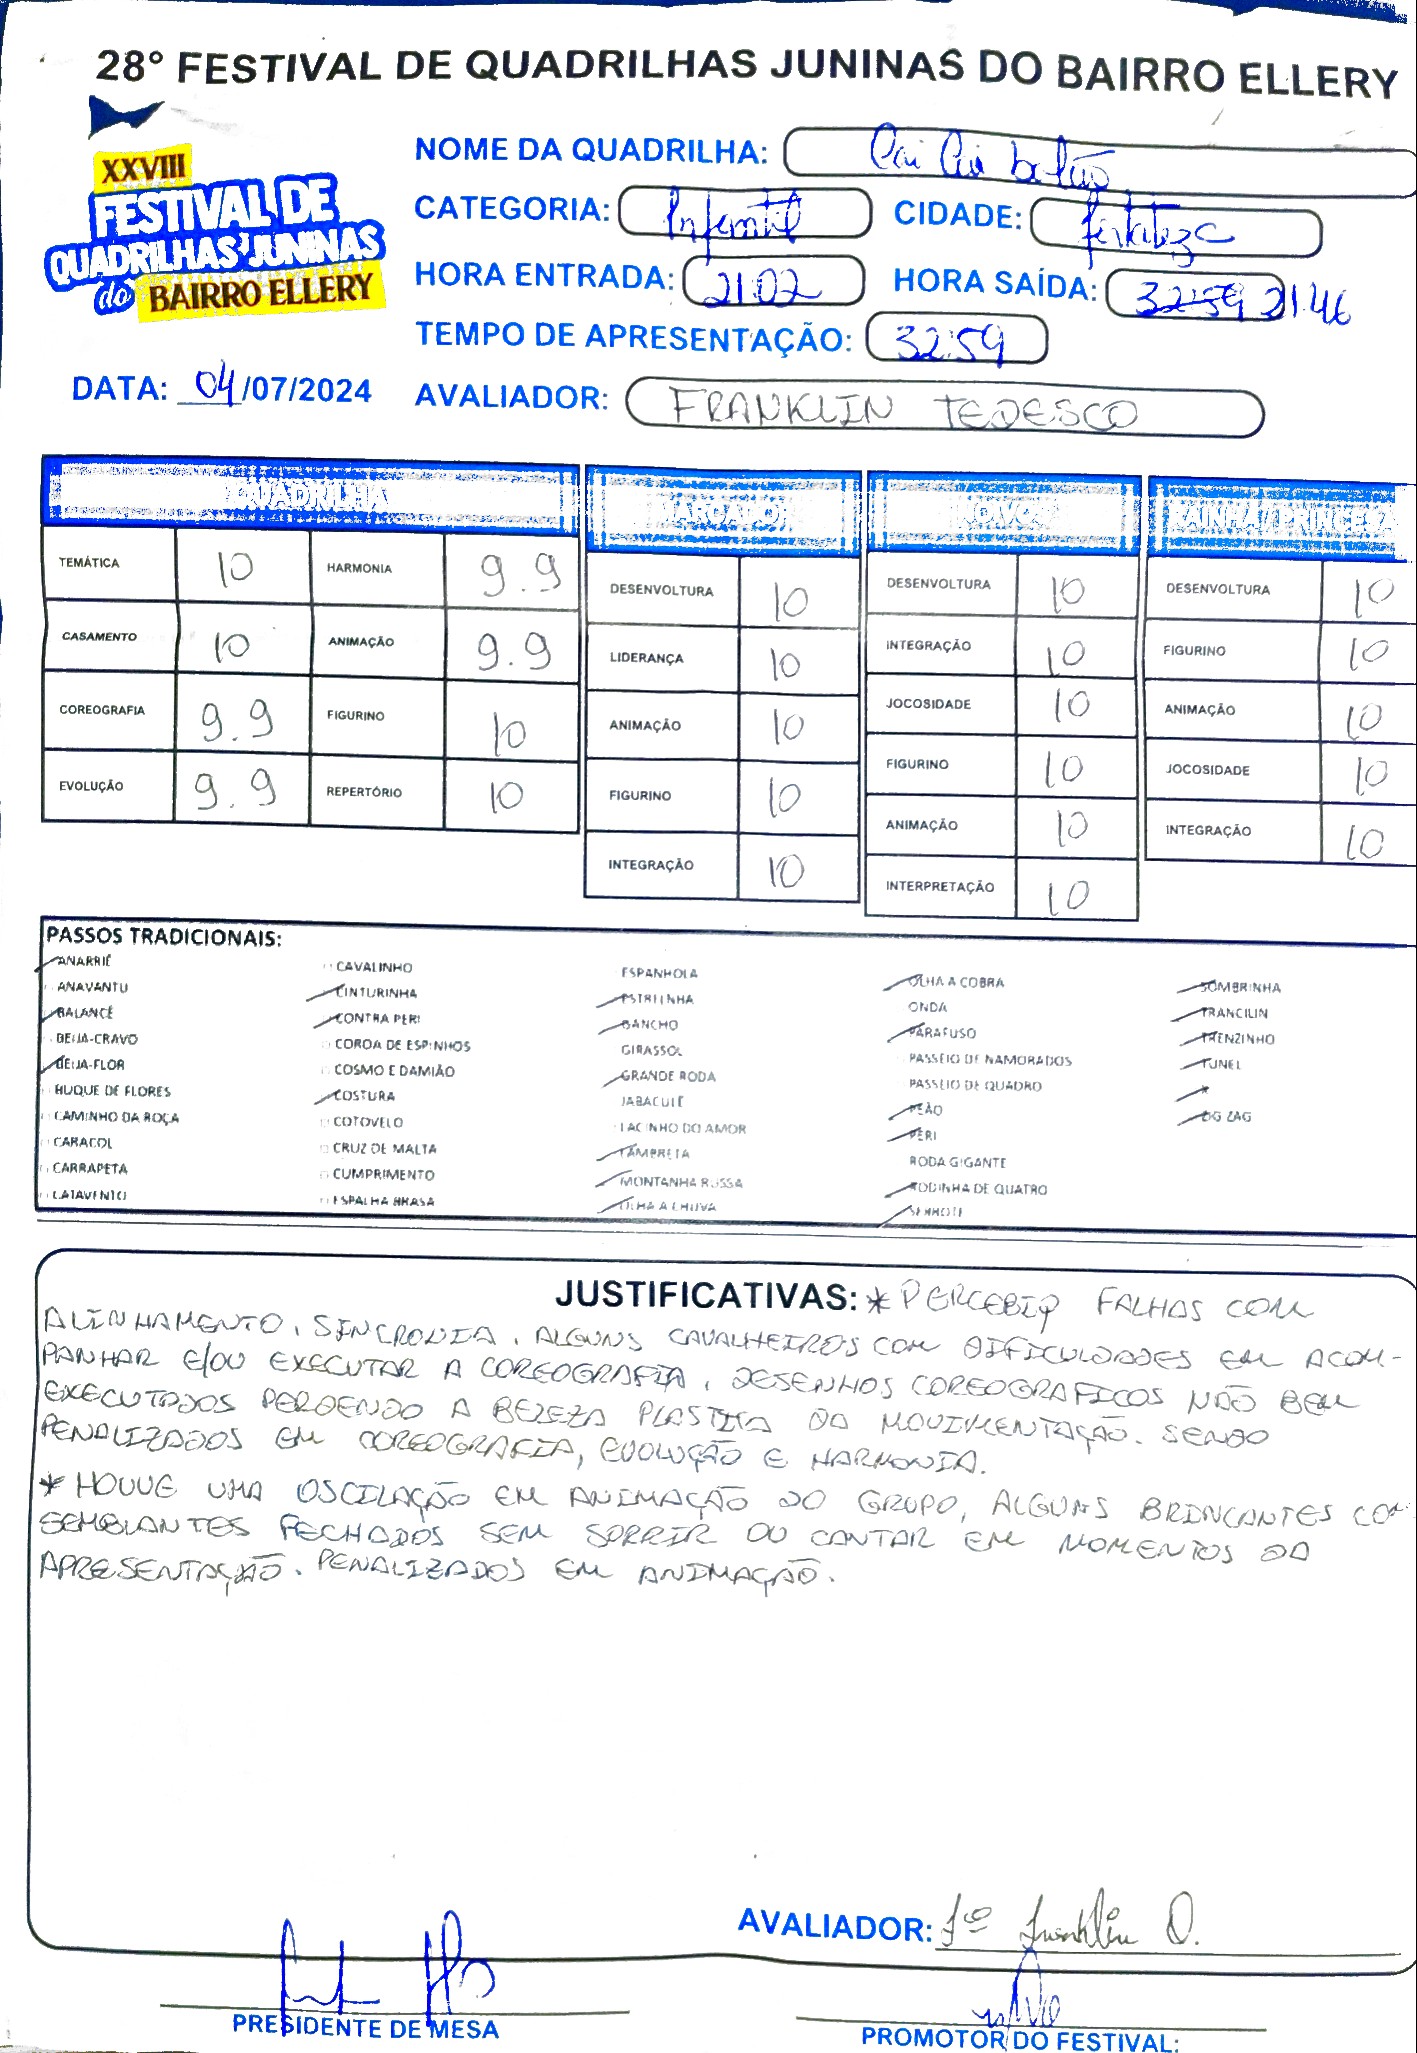 28° FESTIVAL DE QUADRILHAS JUNINAS DO BAIRRO ELLERY
XXVIII
FESTIVAL DE
QUADRILHAS JUNINAS
do BAIRRO ELLERY
NOME DA QUADRILHA: Cai Cai balão
CATEGORIA: Infantil CIDADE: fortaleza
HORA ENTRADA: 21:02 HORA SAÍDA: 32:59 21:46
TEMPO DE APRESENTAÇÃO: 32:59
DATA: 04/07/2024 AVALIADOR: FRANKLIN TEDESCO
QUADRILHA
TEMÁTICA 10 HARMONIA 9.9
CASAMENTO 10 ANIMAÇÃO 9.9
COREOGRAFIA 9.9 FIGURINO 10
EVOLUÇÃO 9.9 REPERTÓRIO 10
MARCADOR
DESENVOLTURA 10
LIDERANÇA 10
ANIMAÇÃO 10
FIGURINO 10
INTEGRAÇÃO 10
NOIVOS
DESENVOLTURA 10
INTEGRAÇÃO 10
JOCOSIDADE 10
FIGURINO 10
ANIMAÇÃO 10
INTERPRETAÇÃO 10
RAINHA / PRINCESA
DESENVOLTURA 10
FIGURINO 10
ANIMAÇÃO 10
JOCOSIDADE 10
INTEGRAÇÃO 10
PASSOS TRADICIONAIS:
ANARRIÊ
ANAVANTU
BALANCÊ
BEIJA-CRAVO
BEIJA-FLOR
BUQUE DE FLORES
CAMINHO DA ROÇA
CARACOL
CARRAPETA
CATAVENTO
CAVALINHO
CINTURINHA
CONTRA PERI
COROA DE ESPINHOS
COSMO E DAMIÃO
COSTURA
COTOVELO
CRUZ DE MALTA
CUMPRIMENTO
ESPALHA BRASA
ESPANHOLA
ESTRELINHA
GANCHO
GIRASSOL
GRANDE RODA
JABACULÊ
LACINHO DO AMOR
LAMBRETA
MONTANHA RUSSA
OLHA A CHUVA
OLHA A COBRA
ONDA
PARAFUSO
PASSEIO DE NAMORADOS
PASSEIO DE QUADRO
PEÃO
PERI
RODA GIGANTE
RODINHA DE QUATRO
SERROTE
SOMBRINHA
TRANCILIN
TRENZINHO
TUNEL
X
ZIG ZAG
JUSTIFICATIVAS: * PERCEBIQ FALHAS COM
ALINHAMENTO, SINCRONIA, ALGUNS CAVALHEIROS COM DIFICULDADES EM ACOM-
PANHAR E/OU EXECUTAR A COREOGRAFIA, DESENHOS COREOGRAFICOS NÃO BEM
EXECUTADOS PERDENDO A BELEZA PLASTICA DA MOVIMENTAÇÃO. SENDO
PENALIZADOS EM COREOGRAFIA, EVOLUÇÃO E HARMONIA.
* HOUVE UMA OSCILAÇÃO EM ANIMAÇÃO DO GRUPO, ALGUNS BRINCANTES COM
SEMBLANTES FECHADOS SEM SORRIR OU CANTAR EM MOMENTOS DA
APRESENTAÇÃO. PENALIZADOS EM ANIMAÇÃO.
AVALIADOR: Fco Franklin O.
PRESIDENTE DE MESA
PROMOTOR DO FESTIVAL: